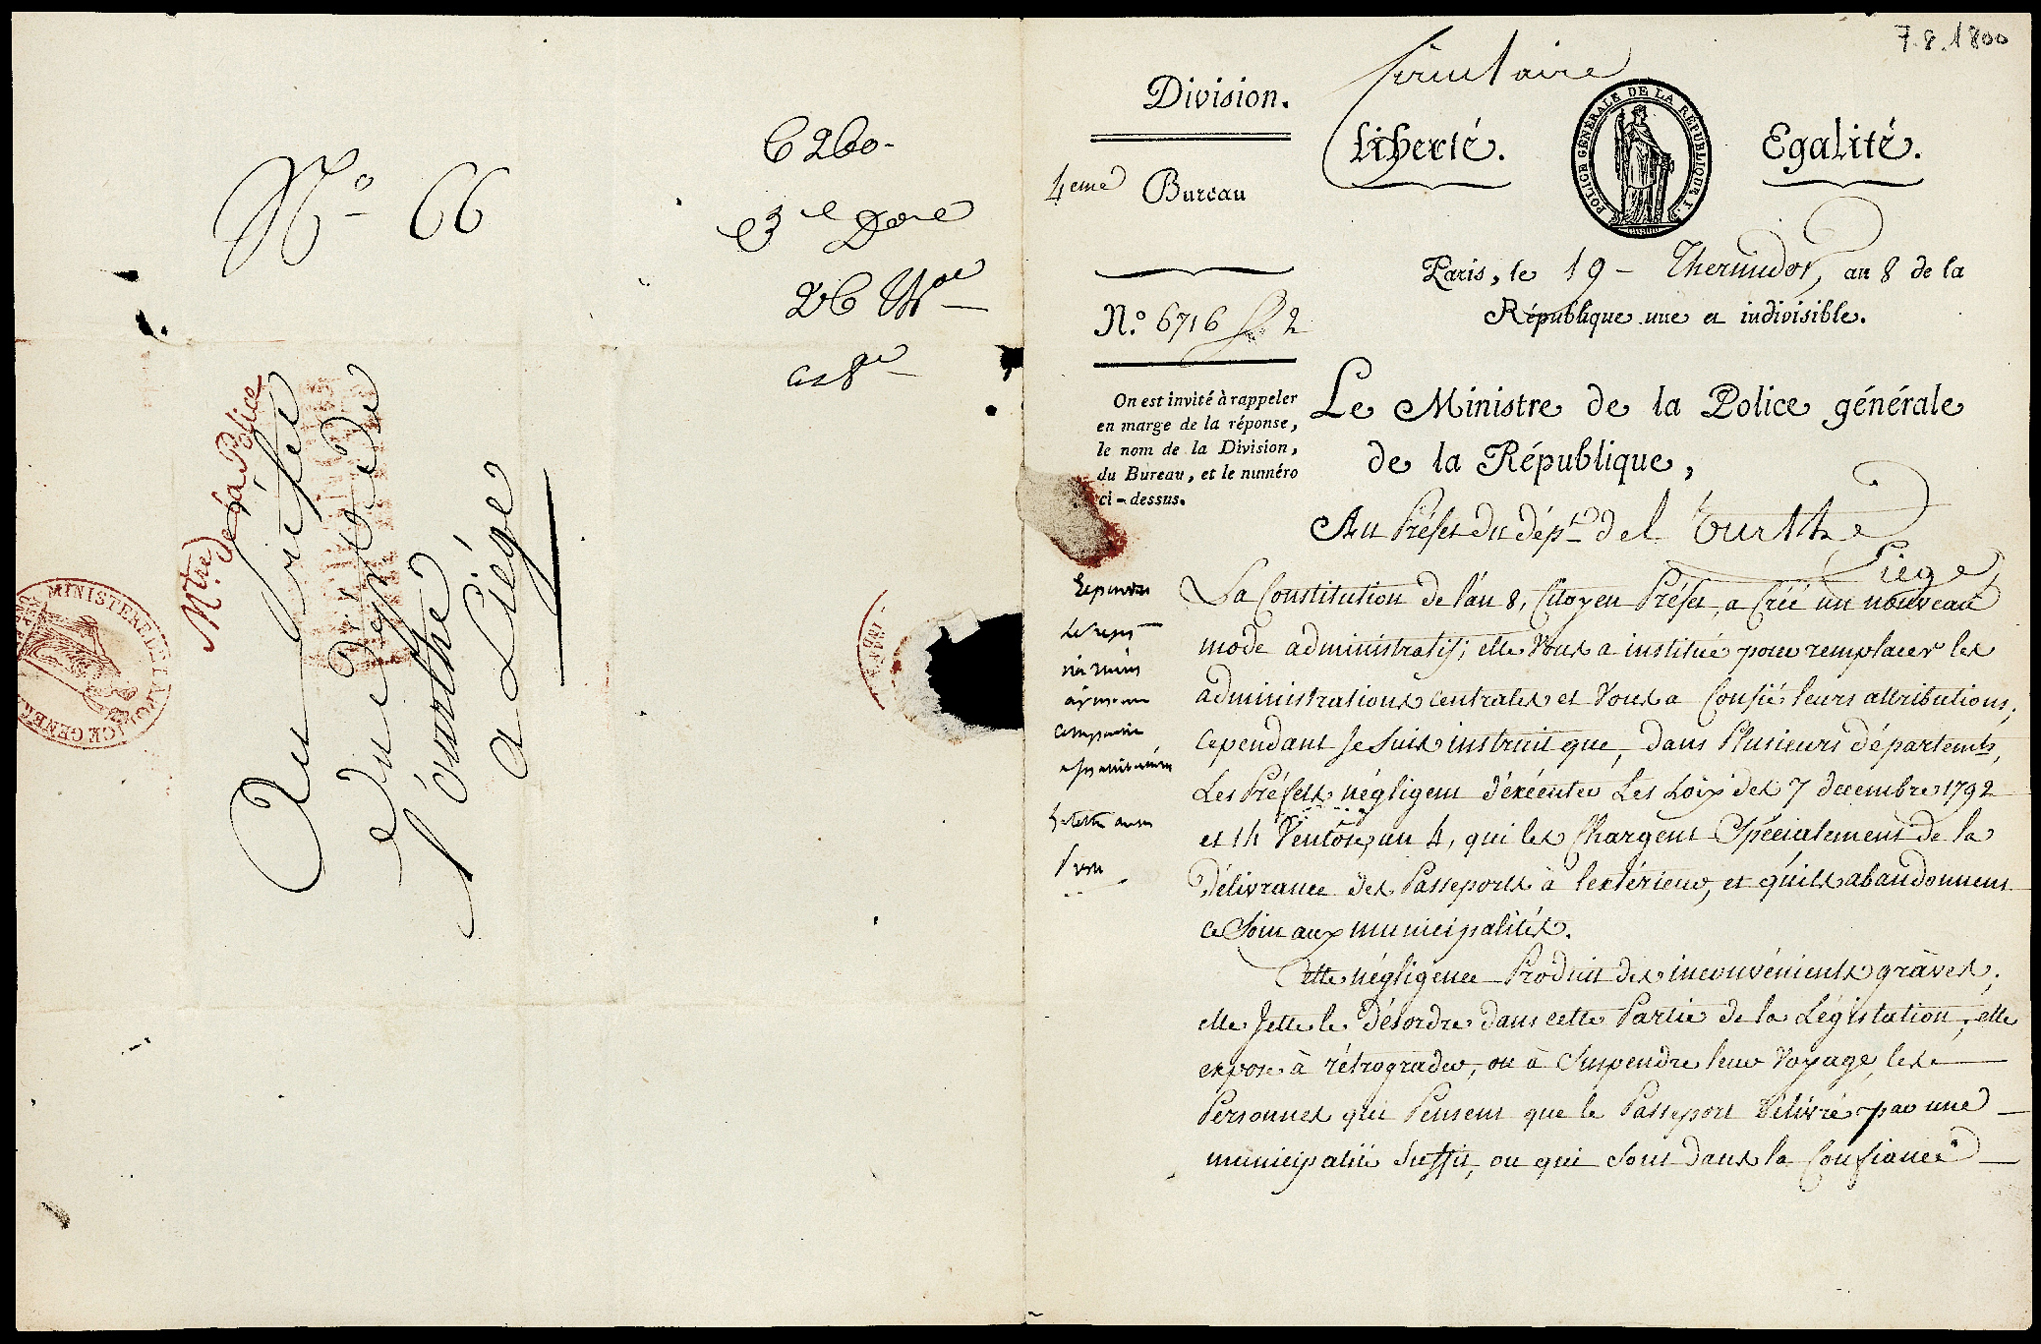 Nº 66
6260.
3e Don
26 Thor
an 8e
Mtre de la Police
Au Préfet
du dépt de
l'ourthe
a Liége
MINISTERE DE LA POLICE GENERALE
7.8.1800
Circulaire
Division.
Liberté.
Egalité.
POLICE GÉNÉRALE DE LA RÉPUBLIQUE F.
4eme Bureau
Paris, le 19 Thermidor, an 8 de la
République une et indivisible.
N.º 6716 2
On est invité à rappeler
en marge de la réponse,
le nom de la Division,
du Bureau, et le numéro
ci-dessus.
Le Ministre de la Police générale
de la République,
Au Préfet du dépt de l'Ourthe
Liege
La Constitution de l'an 8, Citoyen Préfet, a Créé un nouveau
mode administratif; elle Vous a institué pour remplacer les
administrations centrales et Vous a Confié leurs attributions;
cependant Je Suis instruit que, dans Plusieurs départemts,
Les Préfets négligent d'exécuter Les Loix des 7 decembre 1792
et 14 Ventôse, an 4, qui les Chargent Spécialement de la
Délivrance des Passeports à l'extérieur, et qu'ils abandonnent
ce Soin aux municipalités.
Cette négligence Produit des inconvénients gràves;
elle Jette le Désordre dans cette Partie de la Législation; elle
expose à rétrograder, ou à Suspendre leur Voyage, les
Personnes qui Pensent que le Passeport Délivré par une
municipalité Suffit, ou qui Sont dans la Confiance